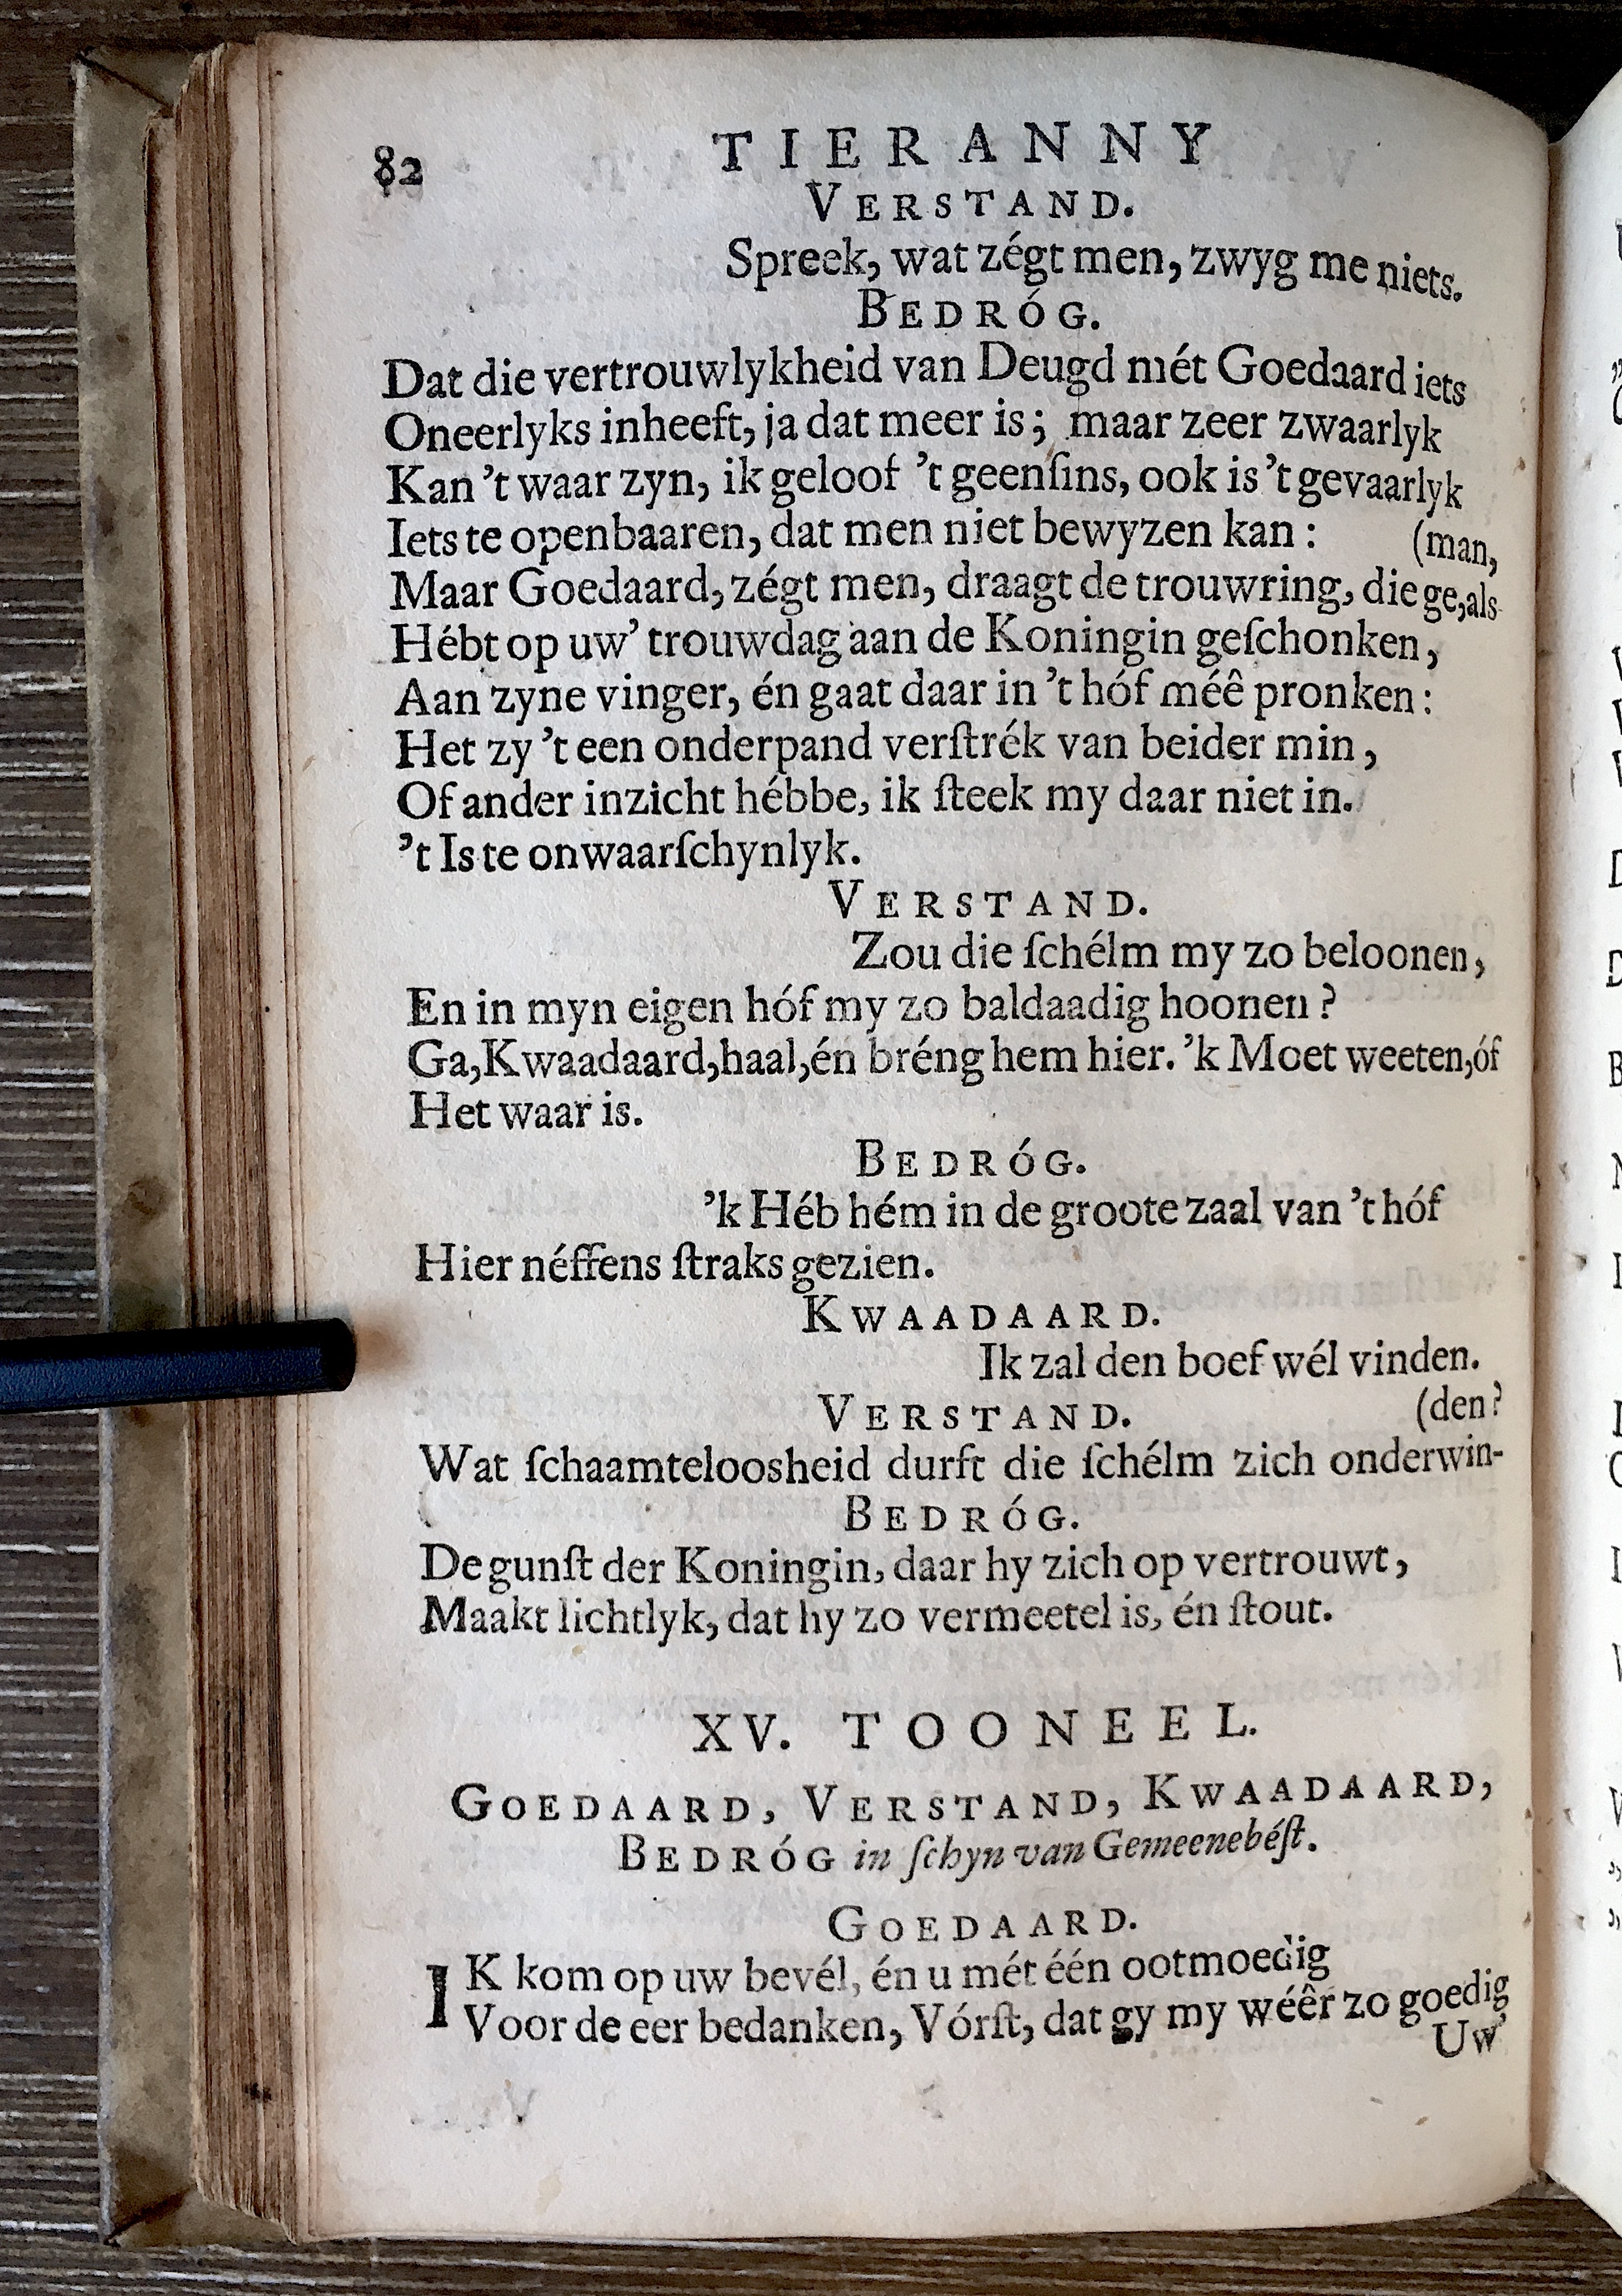 82 TIERANNY
VERSTAND.
Spreek, wat zégt men, zwyg me niets.
BEDRÓG.
Dat die vertrouwlykheid van Deugd mét Goedaard iets
Oneerlyks inheeft, ja dat meer is; maar zeer zwaarlyk
Kan 't waar zyn, ik geloof 't geenſins, ook is 't gevaarlyk
Iets te openbaaren, dat men niet bewyzen kan: (man,
Maar Goedaard, zégt men, draagt de trouwring, die ge, als
Hébt op uw' trouwdag aan de Koningin geſchonken,
Aan zyne vinger, én gaat daar in 't hóf méê pronken:
Het zy 't een onderpand verſtrék van beider min,
Of ander inzicht hébbe, ik ſteek my daar niet in.
't Is te onwaarſchynlyk.
VERSTAND.
Zou die ſchélm my zo beloonen,
En in myn eigen hóf my zo baldaadig hoonen?
Ga, Kwaadaard, haal, én bréng hem hier. 'k Moet weeten, óf
Het waar is.
BEDRÓG.
'k Héb hém in de groote zaal van 't hóf
Hier néffens ſtraks gezien.
KWAADAARD.
Ik zal den boef wél vinden.
VERSTAND. (den?
Wat ſchaamteloosheid durft die ſchélm zich onderwin-
BEDRÓG.
De gunſt der Koningin, daar hy zich op vertrouwt,
Maakt lichtlyk, dat hy zo vermeetel is, én ſtout.
XV. TOONEEL.
GOEDAARD, VERSTAND, KWAADAARD,
BEDRÓG in ſchyn van Gemeenebéſt.
GOEDAARD.
IK kom op uw bevél, én u mét één ootmoedig
Voor de eer bedanken, Vórſt, dat gy my wéêr zo goedig
Uw